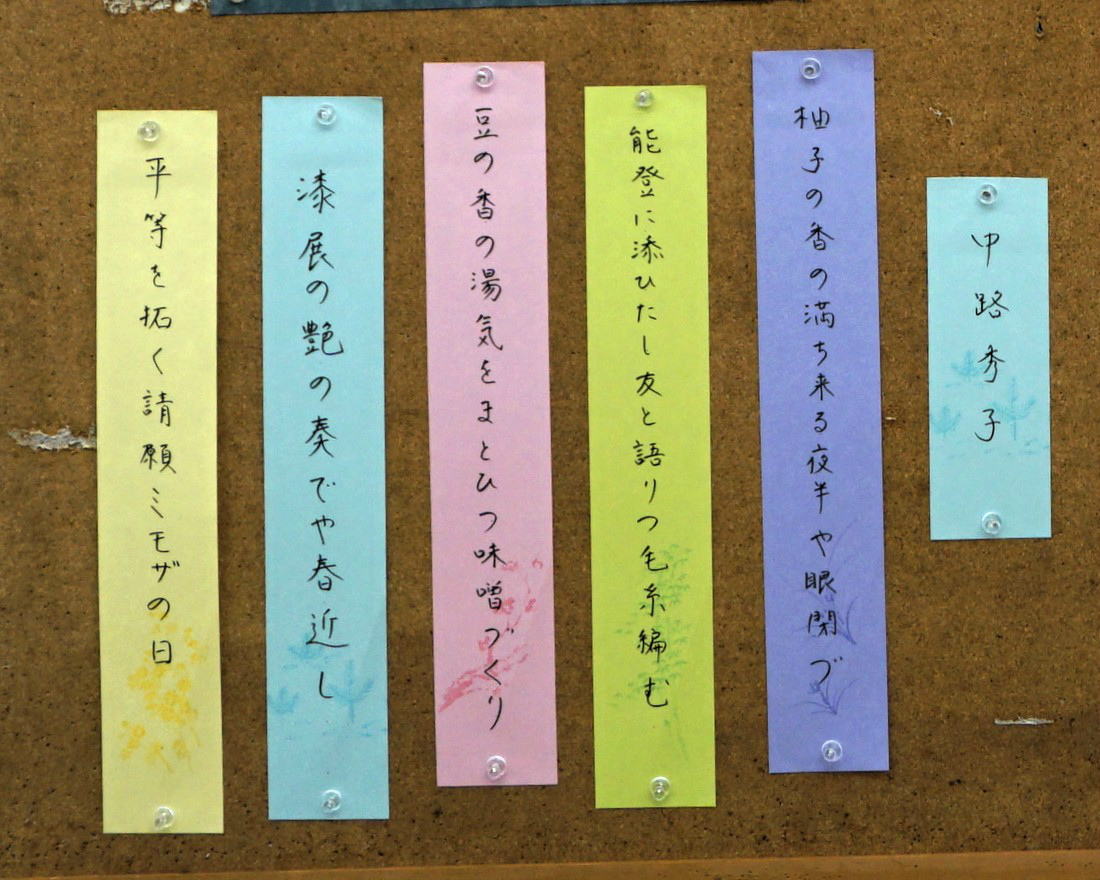 中路秀子
柚子の香の満ち来る夜半や眼閉づ
能登に添ひたし友と語りつ毛糸編む
豆の香の湯気をまとひつ味噌づくり
漆展の艶の奏でや春近し
平等を拓く請願ミモザの日